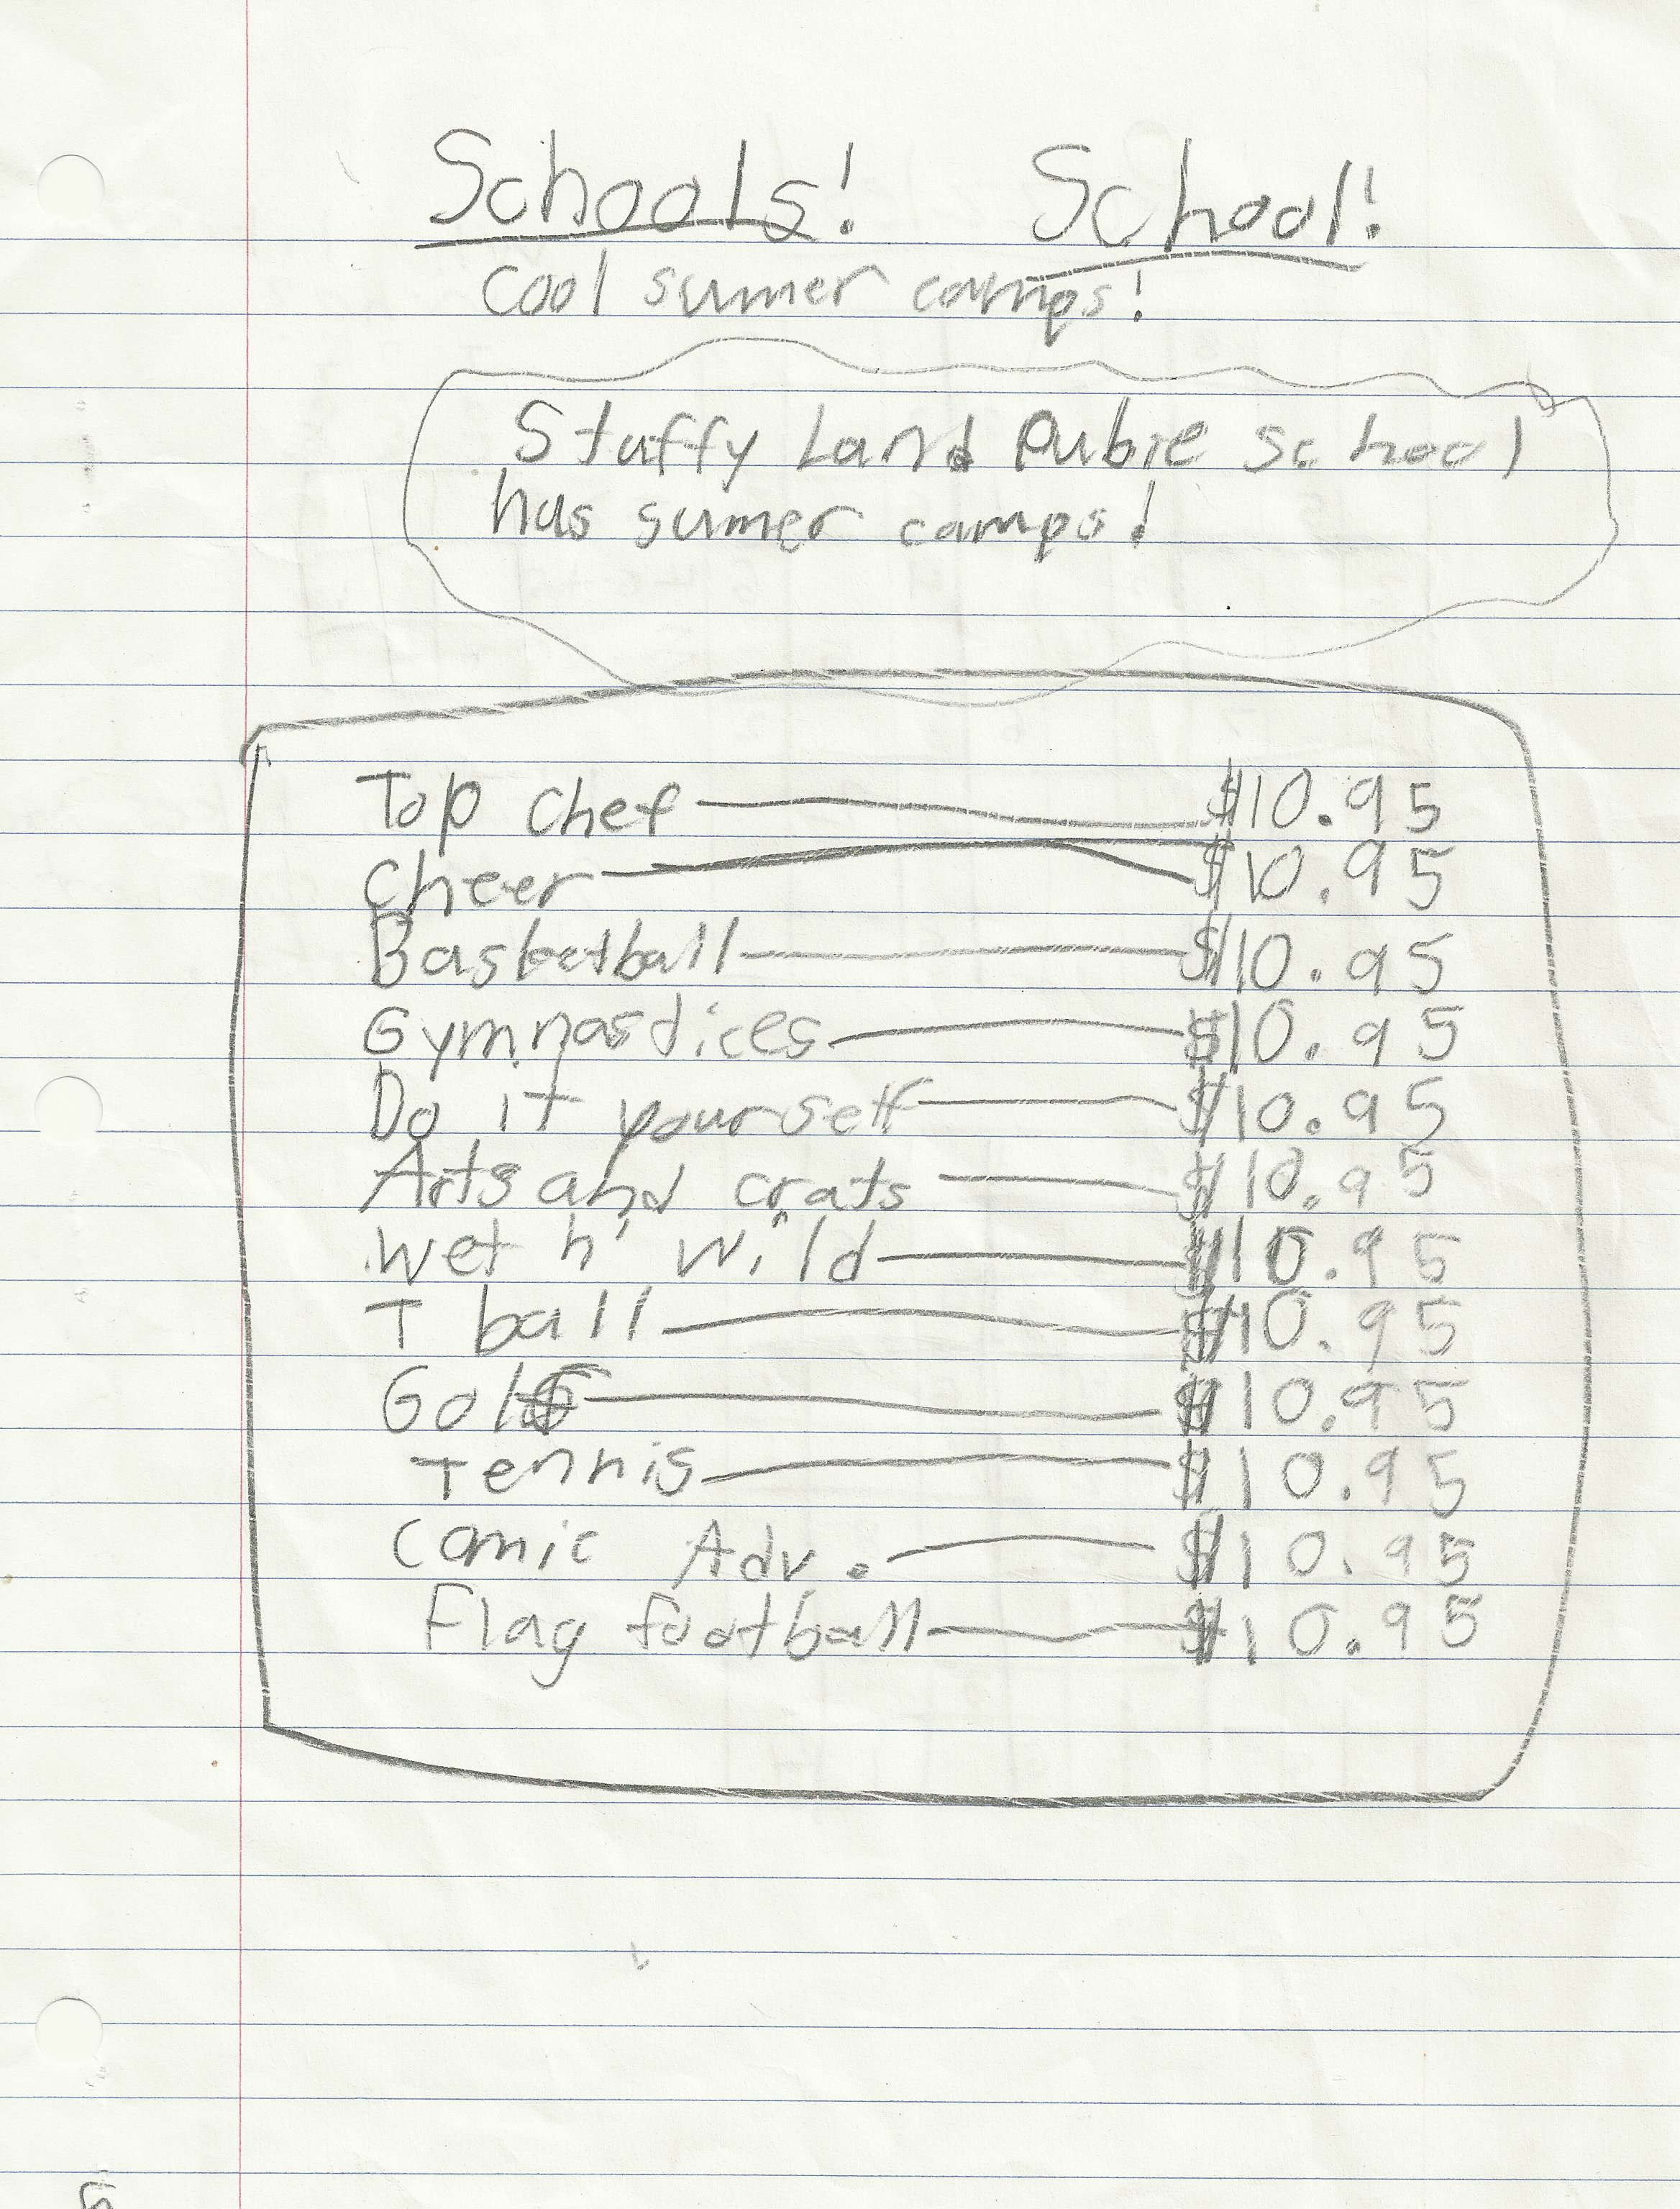 Schools! School!
cool sumer camps!
Stuffy Land Pubie School
has sumer camps!
Top chef $10.95
cheer $10.95
Basketball $10.95
Gymnasdices $10.95
Do it yourself $10.95
Arts and crats $10.95
Wet n' Wild $10.95
T ball $10.95
Golf $10.95
Tennis $10.95
Comic Adv. $10.95
Flag football $10.95